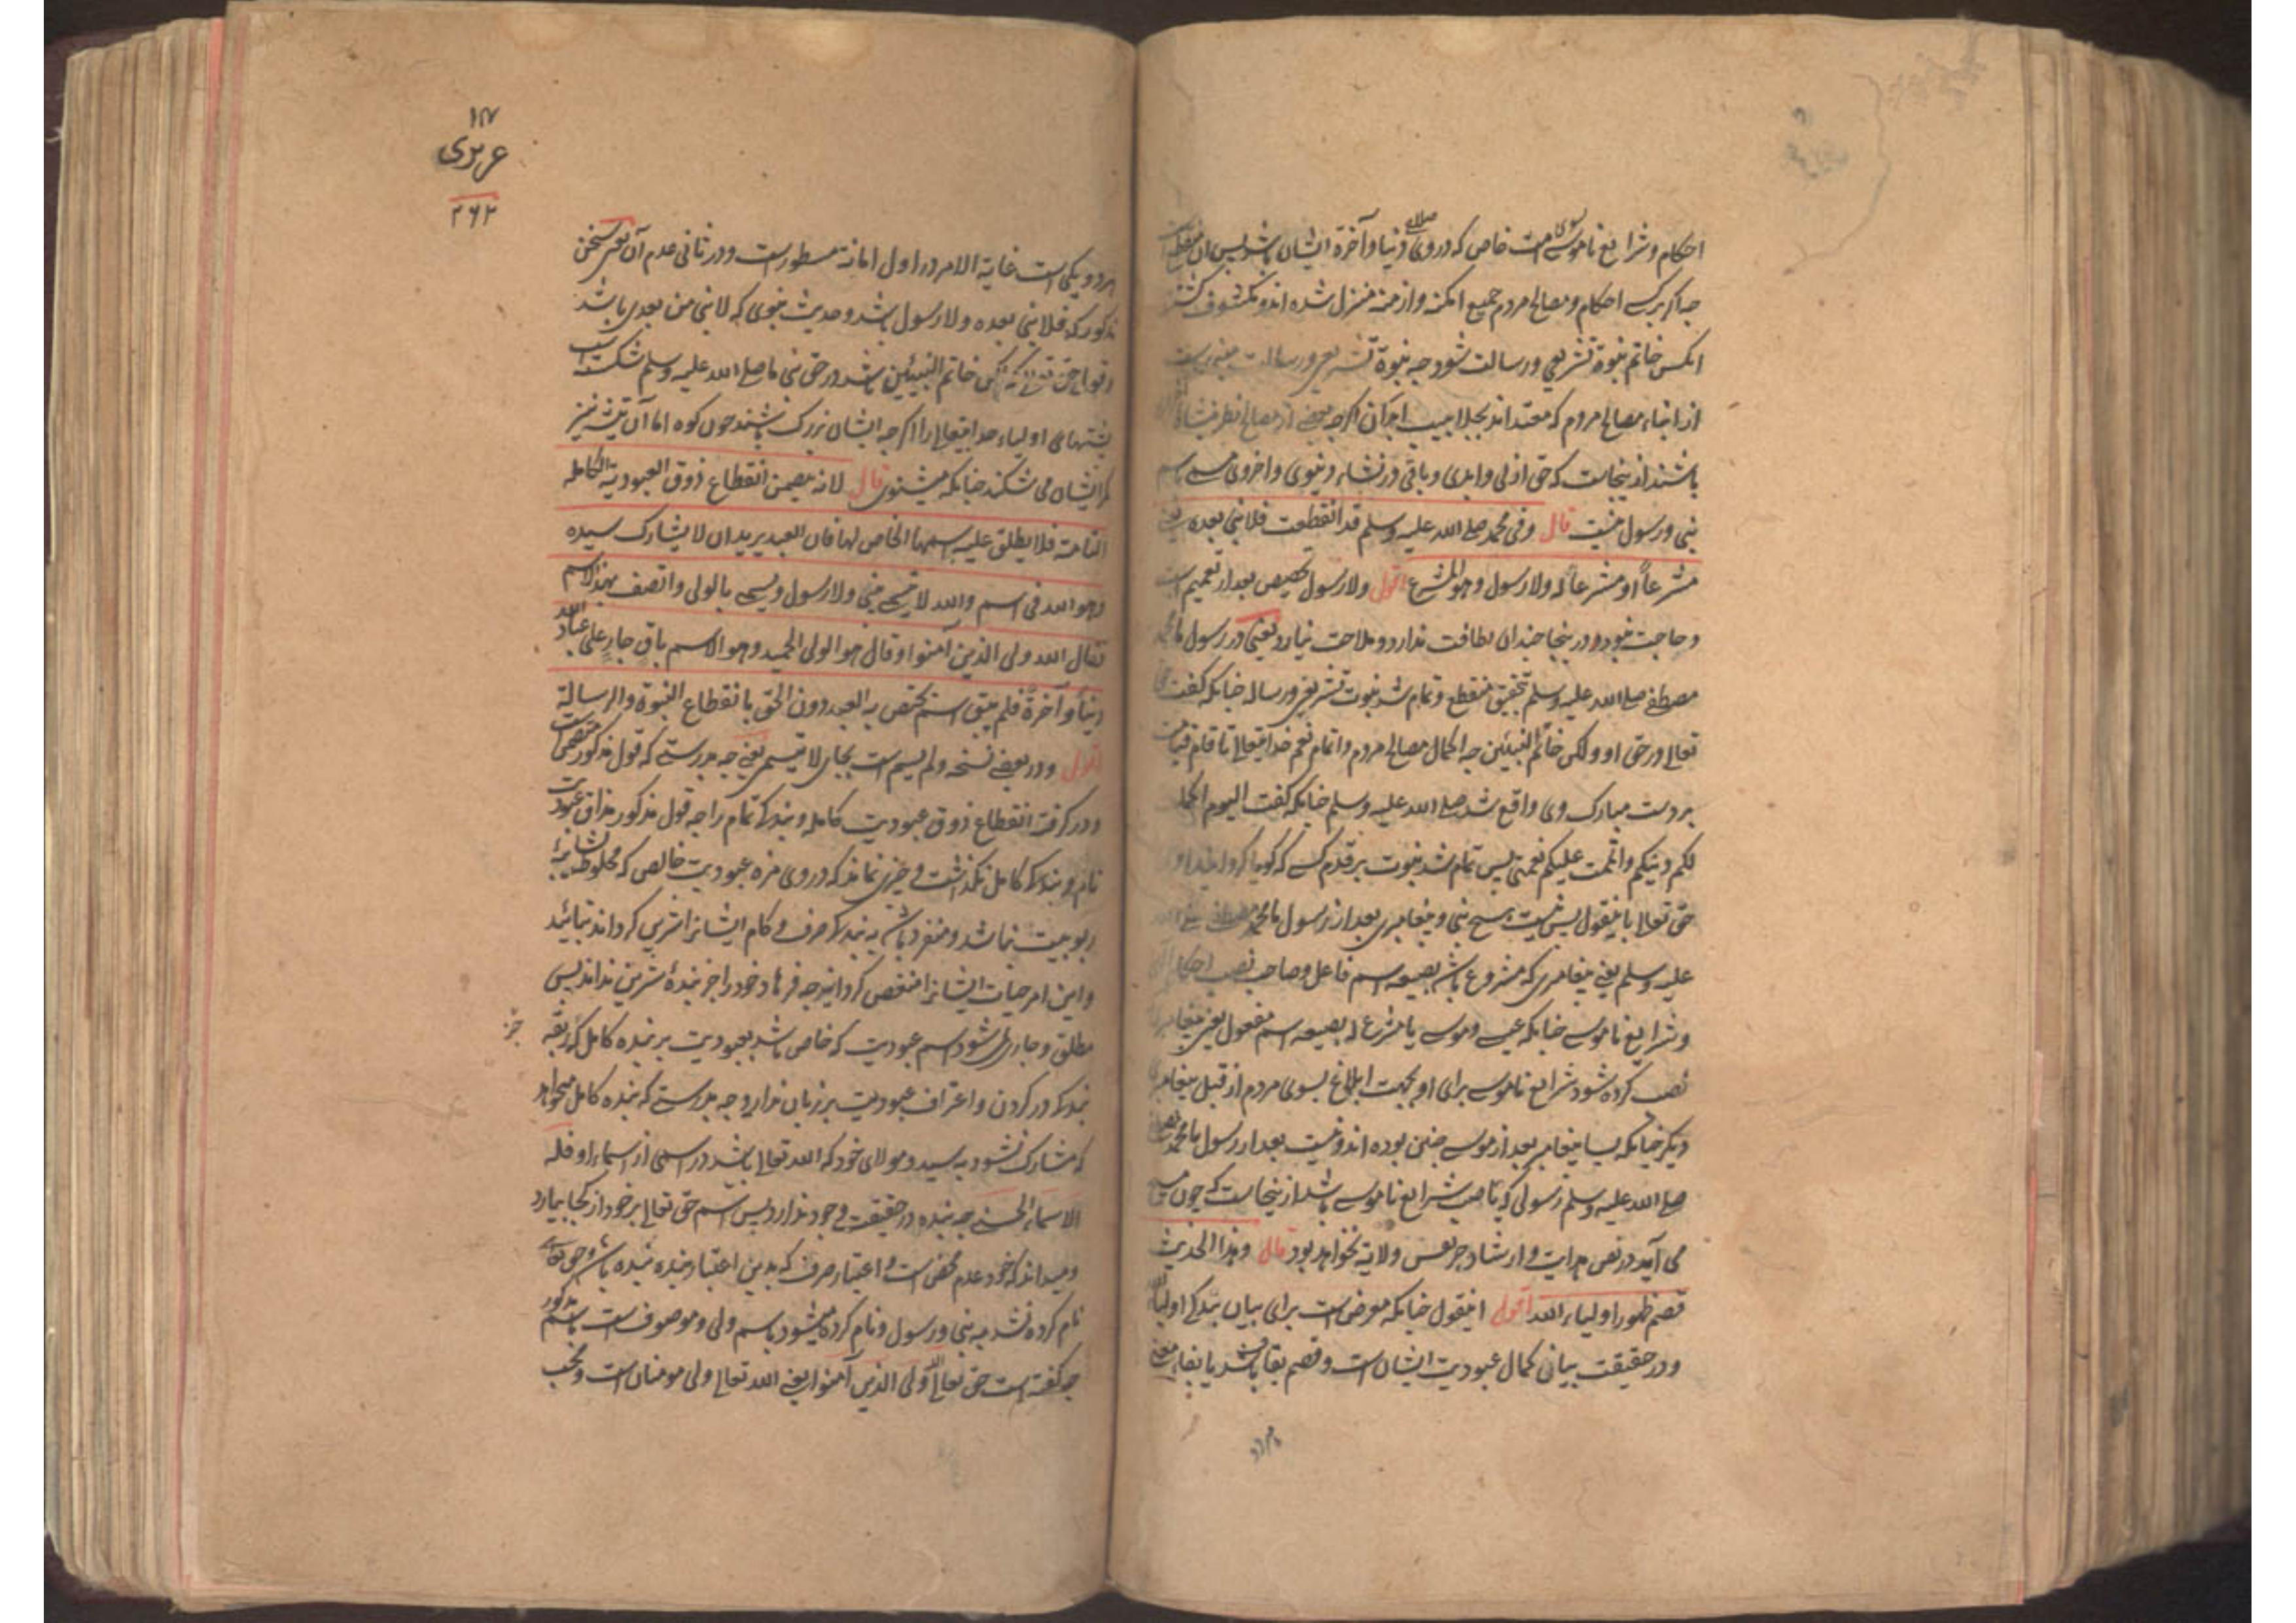 احکام و شرایع ناموسی است خاص که در وی دنیا و آخرة ایشان باشد پس ان منقطع
چه اکر برکسی احکام و مصالح مردم جمیع امکنه و ازمنه منزل شده اند و مکشوف کشته
انکس خاتم نبوة تشریعی و رسالت شود چه نبوة تشریعی و رسالت
از انباء مصالح مردم که معتد اند اکرچه بعضی از مصالح
باشند از ینجاست که حق ازلی و ابدی و باقی در نشاء دنیوی و اخروی مسمی باسم
نبی و رسول نیست قال و فی محمد صلی الله علیه وسلم قد انقطعت فلا نبی بعده یعنی
مشرعاً او مشرعاً له ولا رسول وهو المشرع اقول ولا رسول تخصیص بعد از تعمیم است
و حاجت نبود و در ینجا چندان لطافت ندارد و ملاحت نیارد یعنی در رسول ما محمد
مصطفی صلی الله علیه وسلم بتحقیق منقطع و تمام شد نبوت تشریعی و رساله چنانکه کفت حق
تعالی در حق او ولکن خاتم النبیین چه اکمال مصالح مردم و اتمام نعم خدایتعالی تا قیام قیامت
بر دست مبارک وی واقع شد صلی الله علیه وسلم چنانکه کفت الیوم اکملت
لکم دینکم و اتممت علیکم نعمتی پس تمام شد نبوت بر قدم کسی که کویا کردانید او را
حق تعالی باینقول پس نیست هیچ نبی و پیغامبری بعد از رسول ما محمد مصطفی صلی الله
علیه وسلم یعنی پیغامبری که مشرع باشد بصیغه اسم فاعل و صاحب نصب احکام
و شرایع ناموسی چنانکه عیسی و موسی یا مشرع له بصیغه اسم مفعول یعنی پیغامبری
نصب کرده شود شرایع ناموسی برای او بجهت ابلاغ بسوی مردم از قبل پیغامبر
دیکر چنانکه بسا پیغامبر بعد از موسی چنین بوده اند و نیست بعد از رسول ما محمد مصطفی
صلی الله علیه وسلم رسولی که صاحب شرایع ناموسی باشد از ینجاست که چون مسیح
می آید در نص هدایت و ارشاد جز نفس ولایة نخواهد بود قال وهذا الحدیث
قصم ظهور اولیاء الله اقول اینقول چنانکه معرض است برای بیان بندکی اولیاء الله
و در حقیقت بیانی کمال عبودیت ایشان است و قصم بقاف باشد یا بفاء معنی
۱۸۷
عزیزی
۲۶۲
هر دو یکی است غایة الامر در اول امانة مسطور است و در ثانی عدم آن یعنی سخن
مذکور که فلا نبی بعده ولا رسول باشد و حدیث نبوی که لا نبی من بعدی باشد
و قول حق تعالی که لکن خاتم النبیین باشد در حق نبی ما صلی الله علیه وسلم شکست
پشتهای اولیاء خدایتعالی را اکرچه ایشان بزرک باشند چون کوه اما آن تیشه نیز
کمر ایشان می شکند چنانکه میشنوی قال لانه یتضمن انقطاع ذوق العبودیة الکامله
التامة فلا یطلق علیه اسمها الخاص بها فان العبد یرید ان لا یشارک سیده
وهو الله فی اسم والله لا یتسمی بنبی ولا رسول ویسمی بالولی واتصف بهذا الاسم
فقال الله ولی الذین آمنوا وقال هو الولی الحمید وهو الاسم باق جار علی عباد الله
دنیاً و آخرة فلم یبق اسم یختص به العبد دون الحق بانقطاع النبوة والرسالة
اقول و در بعضی نسخه ولم یسم است بجای لا یتسمی یعنی چه بدرستی که قول مذکور متضمن است
و در کرفته انقطاع ذوق عبودیت کامله و بندکی تمام را چه قول مذکور مذاق عبودیت
تام و بندکی کامل نکذاشت و چیزی نماند که در وی مزه عبودیت خالص که مخلوط بشایبه
ربوبیت نباشد و منفرد باشد به بندکی صرف و کام ایشانرا شیرین کرداند نتمائید
و این امر حیات ایشانرا منغص کردانید چه فرهاد خود را جز بندهٔ شیرین نداند پس
مطلق و جاری نشود اسم عبودیت که خاص باشد بعبودیت بر بنده کامل که ربقه
بندکی در کردن و اعتراف عبودیت بر زبان ندارد چه بدرستی که بنده کامل میخواهد
که مشارک نشود به سید و مولای خود که الله تعالی باشد در اسمی از اسماء او فله
الاسماء الحسنی چه بنده در حقیقت وجود ندارد پس اسم حق تعالی بر خود از کجا بیارد
و میداند که خود عدم محض است و اعتبار صرف که بدین اعتبار بنده بنده باشد و حق تعالی
نام کرده نشد به نبی و رسول و نام کرده میشود باسم ولی و موصوف است باسم مذکور
چه کفته است حق تعالی الله ولی الذین آمنوا یعنی الله تعالی ولی مومنان است و محب